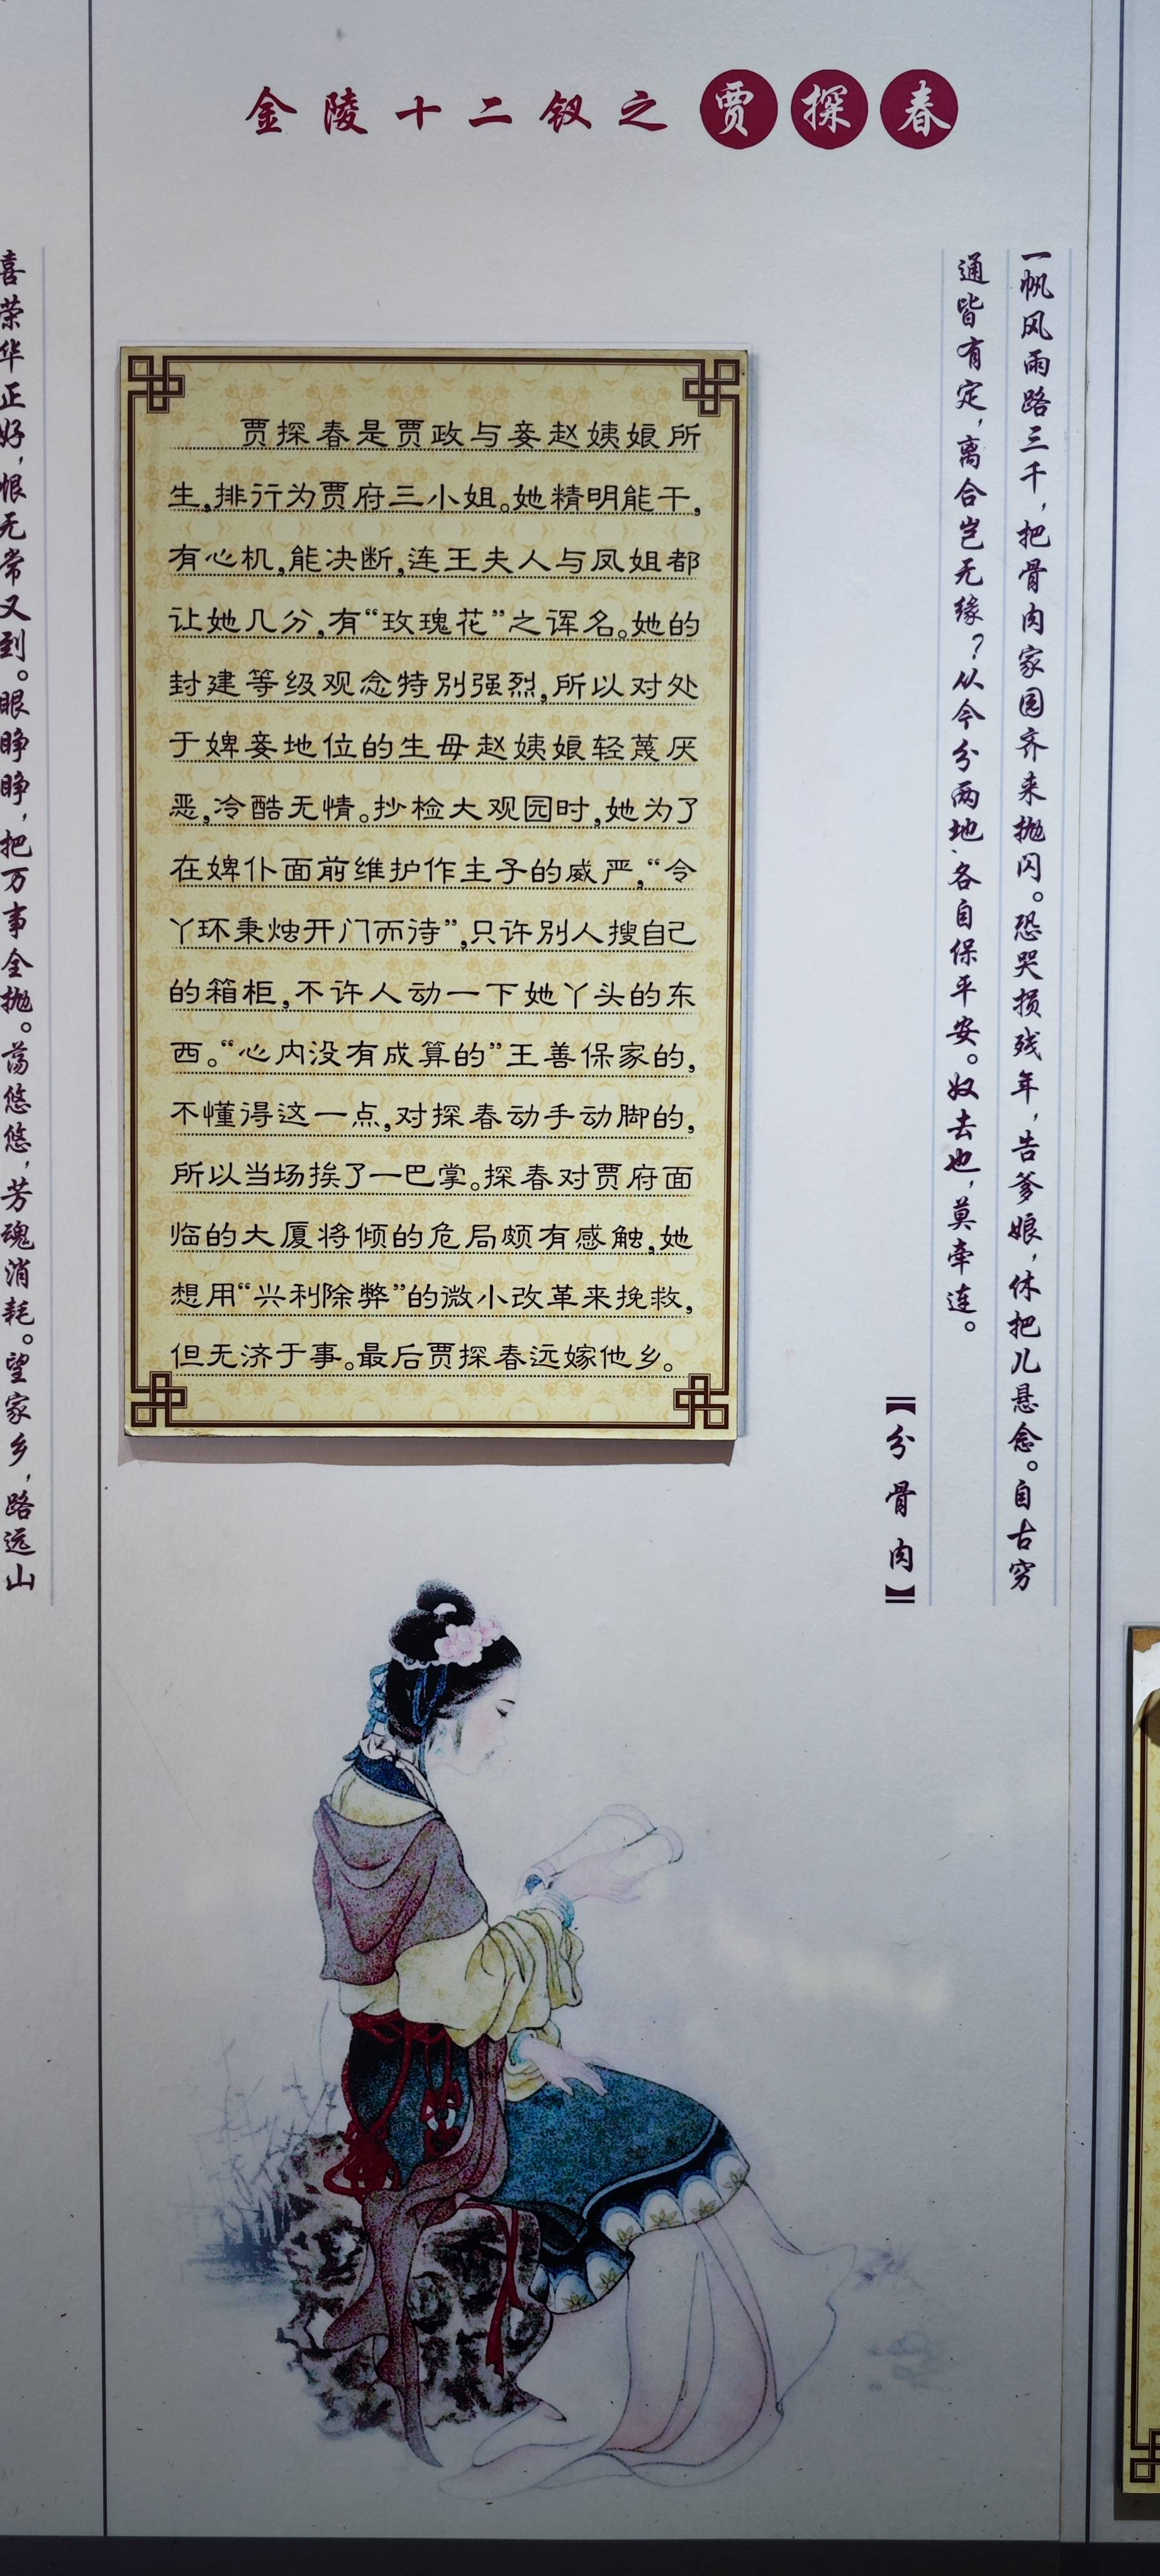 金陵十二钗之贾探春
一帆风雨路三千，把骨肉家园齐来抛闪。恐哭损残年，告爹娘，休把儿悬念。自古穷
通皆有定，离合岂无缘？从今分两地、各自保平安。奴去也，莫牵连。
【分骨肉】
贾探春是贾政与妾赵姨娘所
生，排行为贾府三小姐。她精明能干，
有心机，能决断，连王夫人与凤姐都
让她几分，有“玫瑰花”之诨名。她的
封建等级观念特别强烈，所以对处
于婢妾地位的生母赵姨娘轻蔑厌
恶，冷酷无情。抄检大观园时，她为了
在婢仆面前维护作主子的威严，“令
丫环秉烛开门而待”，只许别人搜自己
的箱柜，不许人动一下她丫头的东
西。“心内没有成算的”王善保家的，
不懂得这一点，对探春动手动脚的，
所以当场挨了一巴掌。探春对贾府面
临的大厦将倾的危局颇有感触，她
想用“兴利除弊”的微小改革来挽救，
但无济于事。最后贾探春远嫁他乡。
喜荣华正好，恨无常又到。眼睁睁，把万事全抛。荡悠悠，芳魂消耗。望家乡，路远山